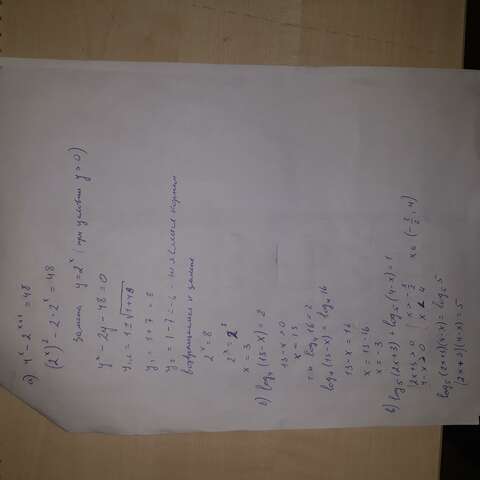 а) 4^x - 2^{x+1} = 48
(2^x)^2 - 2·2^x = 48
замена y = 2^x (при условии y > 0)
y^2 - 2y - 48 = 0
y_{1,2} = 1 ± √(1+48)
y_1 = 1 + 7 = 8
y_2 = 1 - 7 = -6 -
возвращаемся к замене
2^x = 8
2^x = 2^3
x = 3
log_4 (13-x) = 2
13 - x > 0
log_4 16 = 2
log_4 (13-x) = log_4 16
13 - x = 16
x = 13 - 16
в) log_5 (2x+3) + log_5 (4-x) = 1
2x+3 > 0 | x > -3/2
4-x > 0 | x < 4 x ∈ (-3/2; 4)
log_5 (2x+3)(4-x) = log_5 5
(2x+3)(4-x) = 5